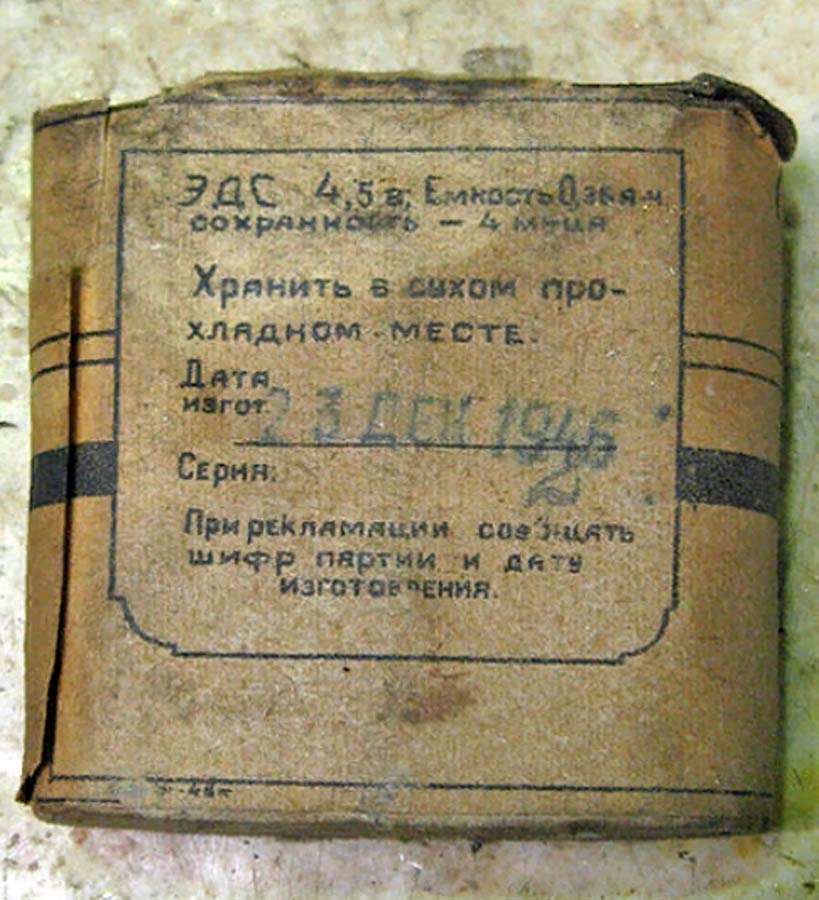 ЭДС 4,5 в, Емкость
сохранность — 4 м-ца
Хранить в сухом про-
хладном месте.
Дата
изгот.
23 ДЕК 1946
2
Серия:
При рекламации сообщать
шифр партии и дату
изготовления.